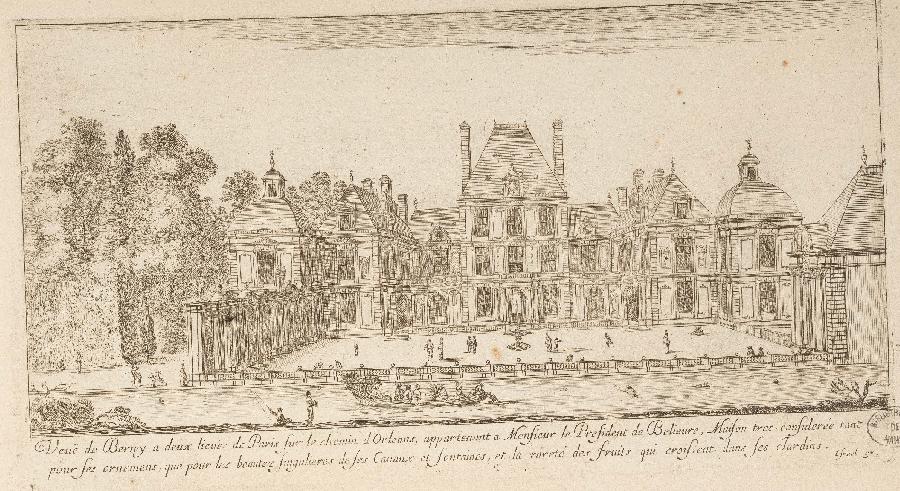 Veuë de Berny a deux lieues de Paris sur le chemin d'Orleans, appartenant a Monsieur le President de Belieure, Maison tres considerée tant
pour ses ornemens, que pour les beautez singulieres de ses Canaux et fontaines, et la rareté des fruits qui croissent dans ses Jardins.